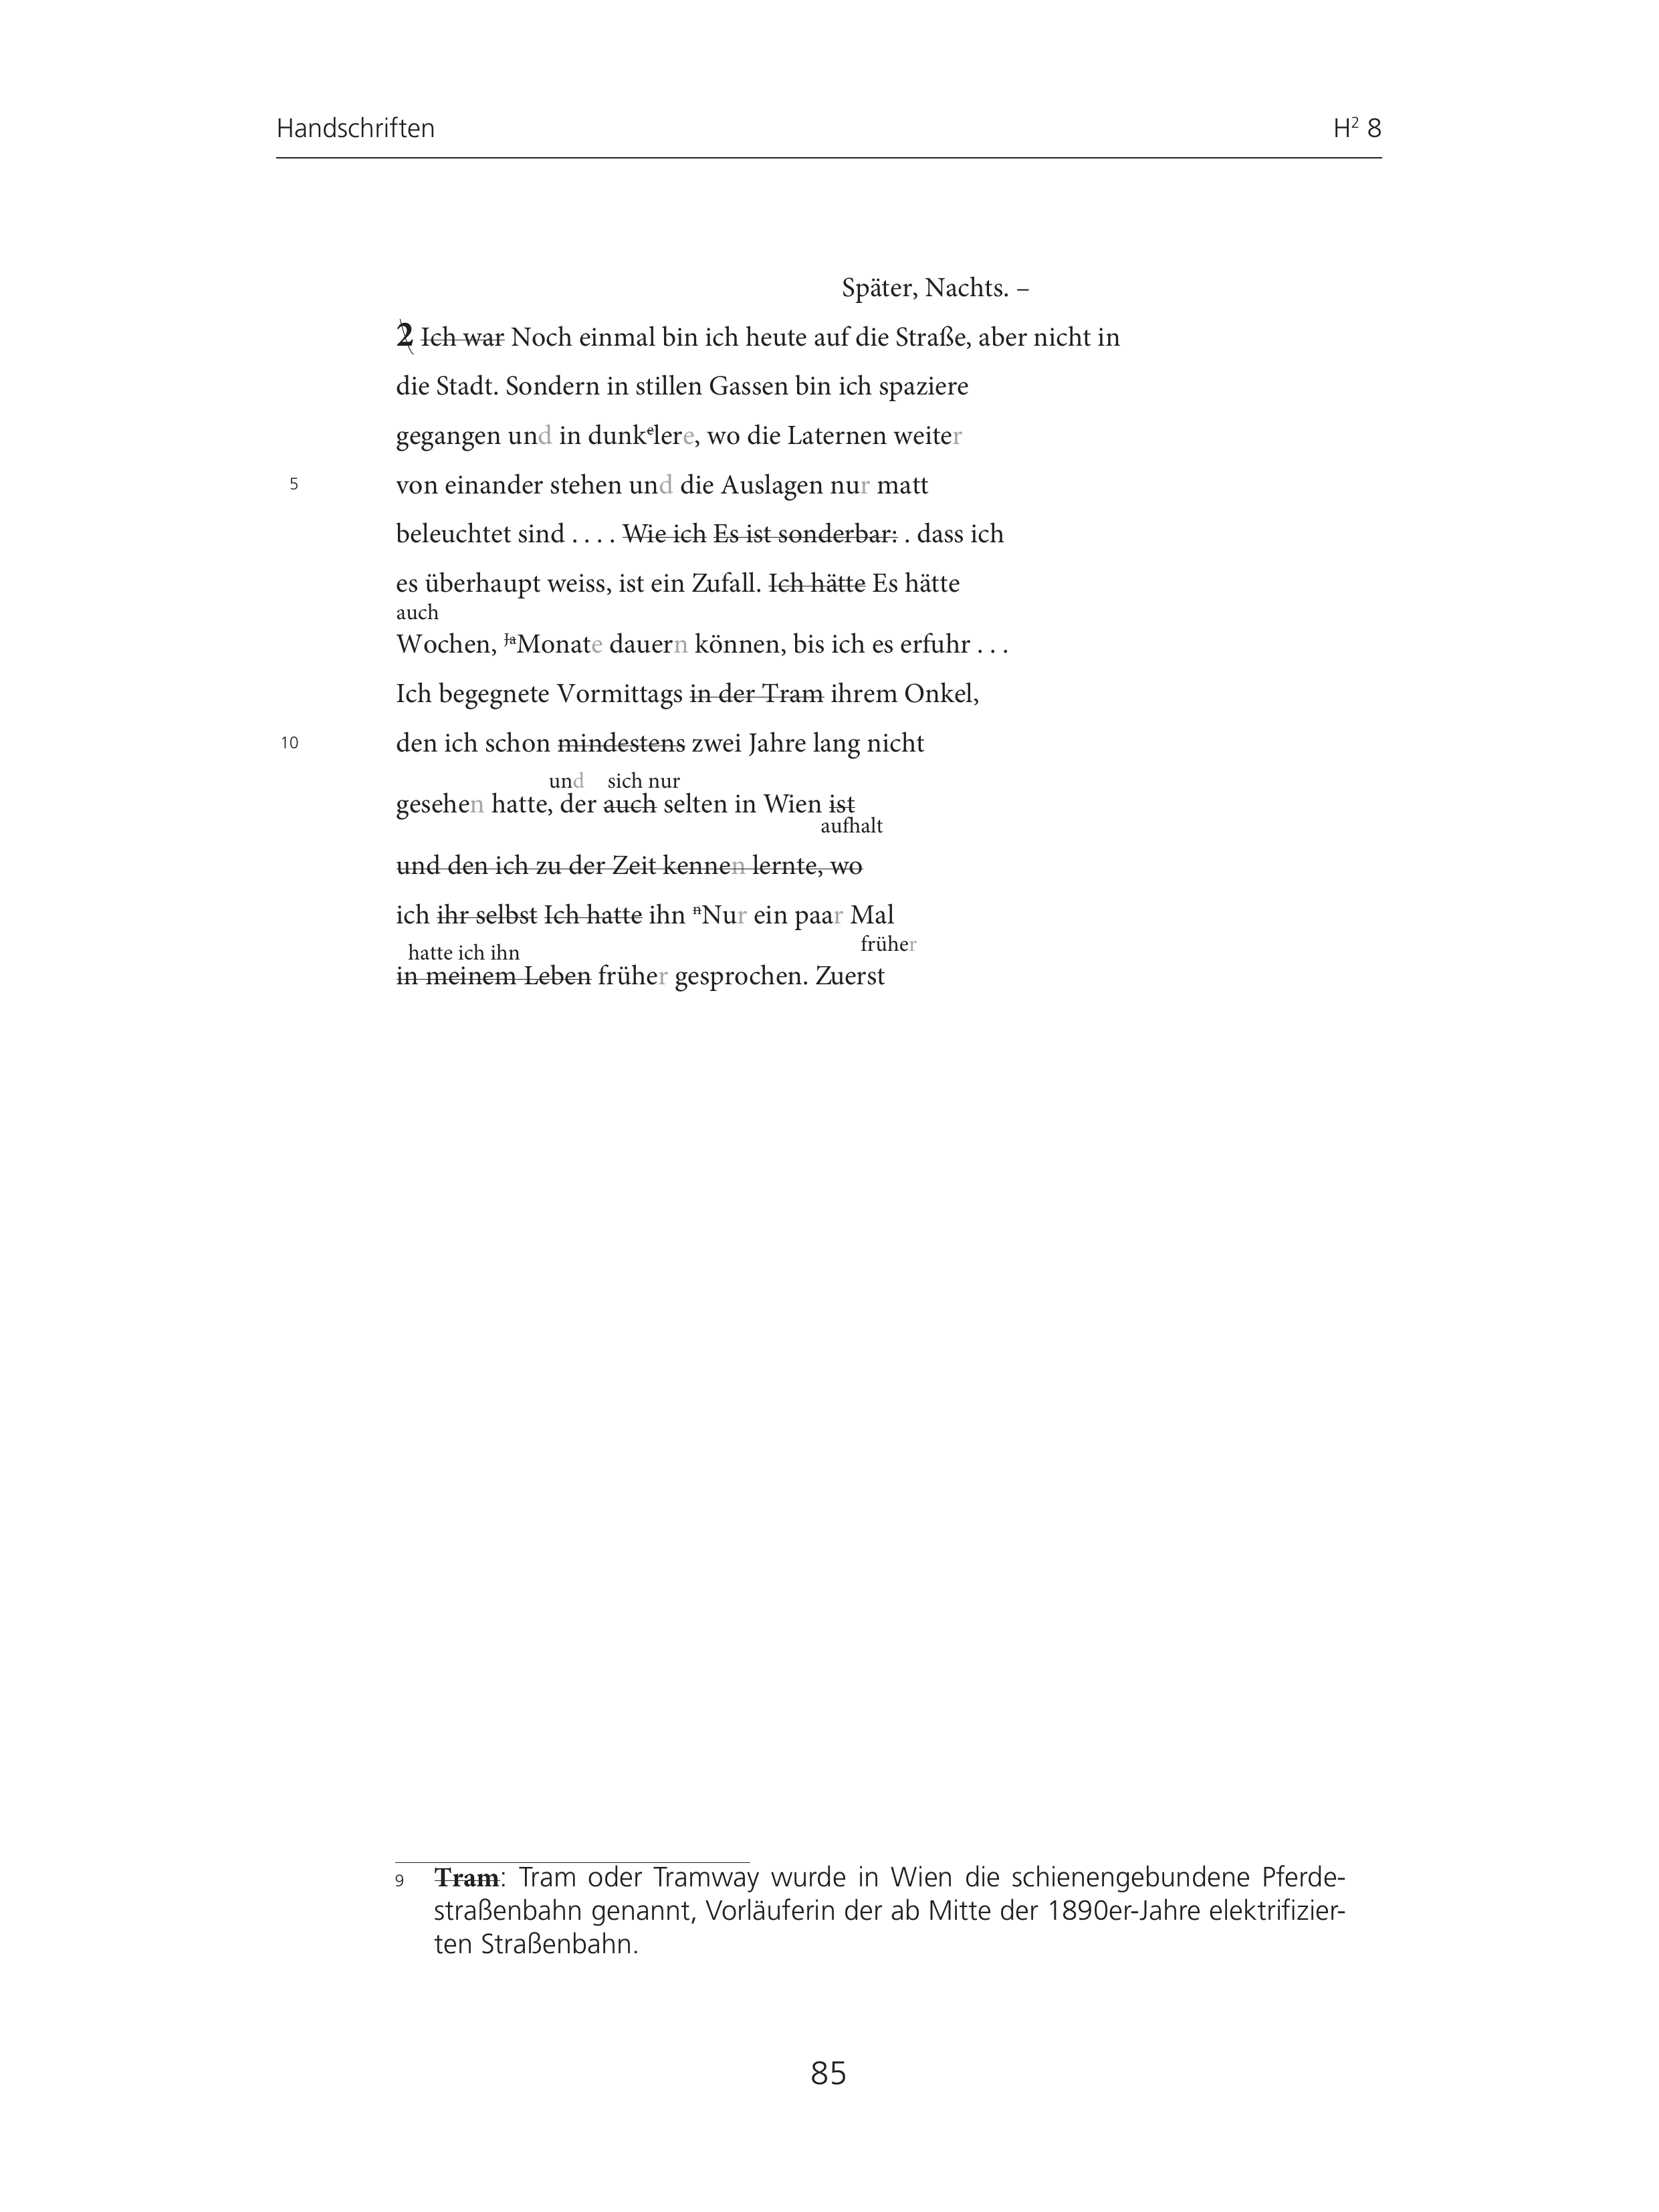 Handschriften H² 8
Später, Nachts. –
2 Ich war Noch einmal bin ich heute auf die Straße, aber nicht in
die Stadt. Sondern in stillen Gassen bin ich spaziere
gegangen und in dunkᵉlere, wo die Laternen weiter
5 von einander stehen und die Auslagen nur matt
beleuchtet sind . . . . Wie ich Es ist sonderbar: . dass ich
es überhaupt weiss, ist ein Zufall. Ich hätte Es hätte
auch
Wochen, ᴶᵃMonate dauern können, bis ich es erfuhr . . .
Ich begegnete Vormittags in der Tram ihrem Onkel,
10 den ich schon mindestens zwei Jahre lang nicht
und sich nur
gesehen hatte, der auch selten in Wien ist
aufhalt
und den ich zu der Zeit kennen lernte, wo
ich ihr selbst Ich hatte ihn ⁿNur ein paar Mal
hatte ich ihn früher
in meinem Leben früher gesprochen. Zuerst
9 Tram: Tram oder Tramway wurde in Wien die schienengebundene Pferde-
straßenbahn genannt, Vorläuferin der ab Mitte der 1890er-Jahre elektrifizier-
ten Straßenbahn.
85